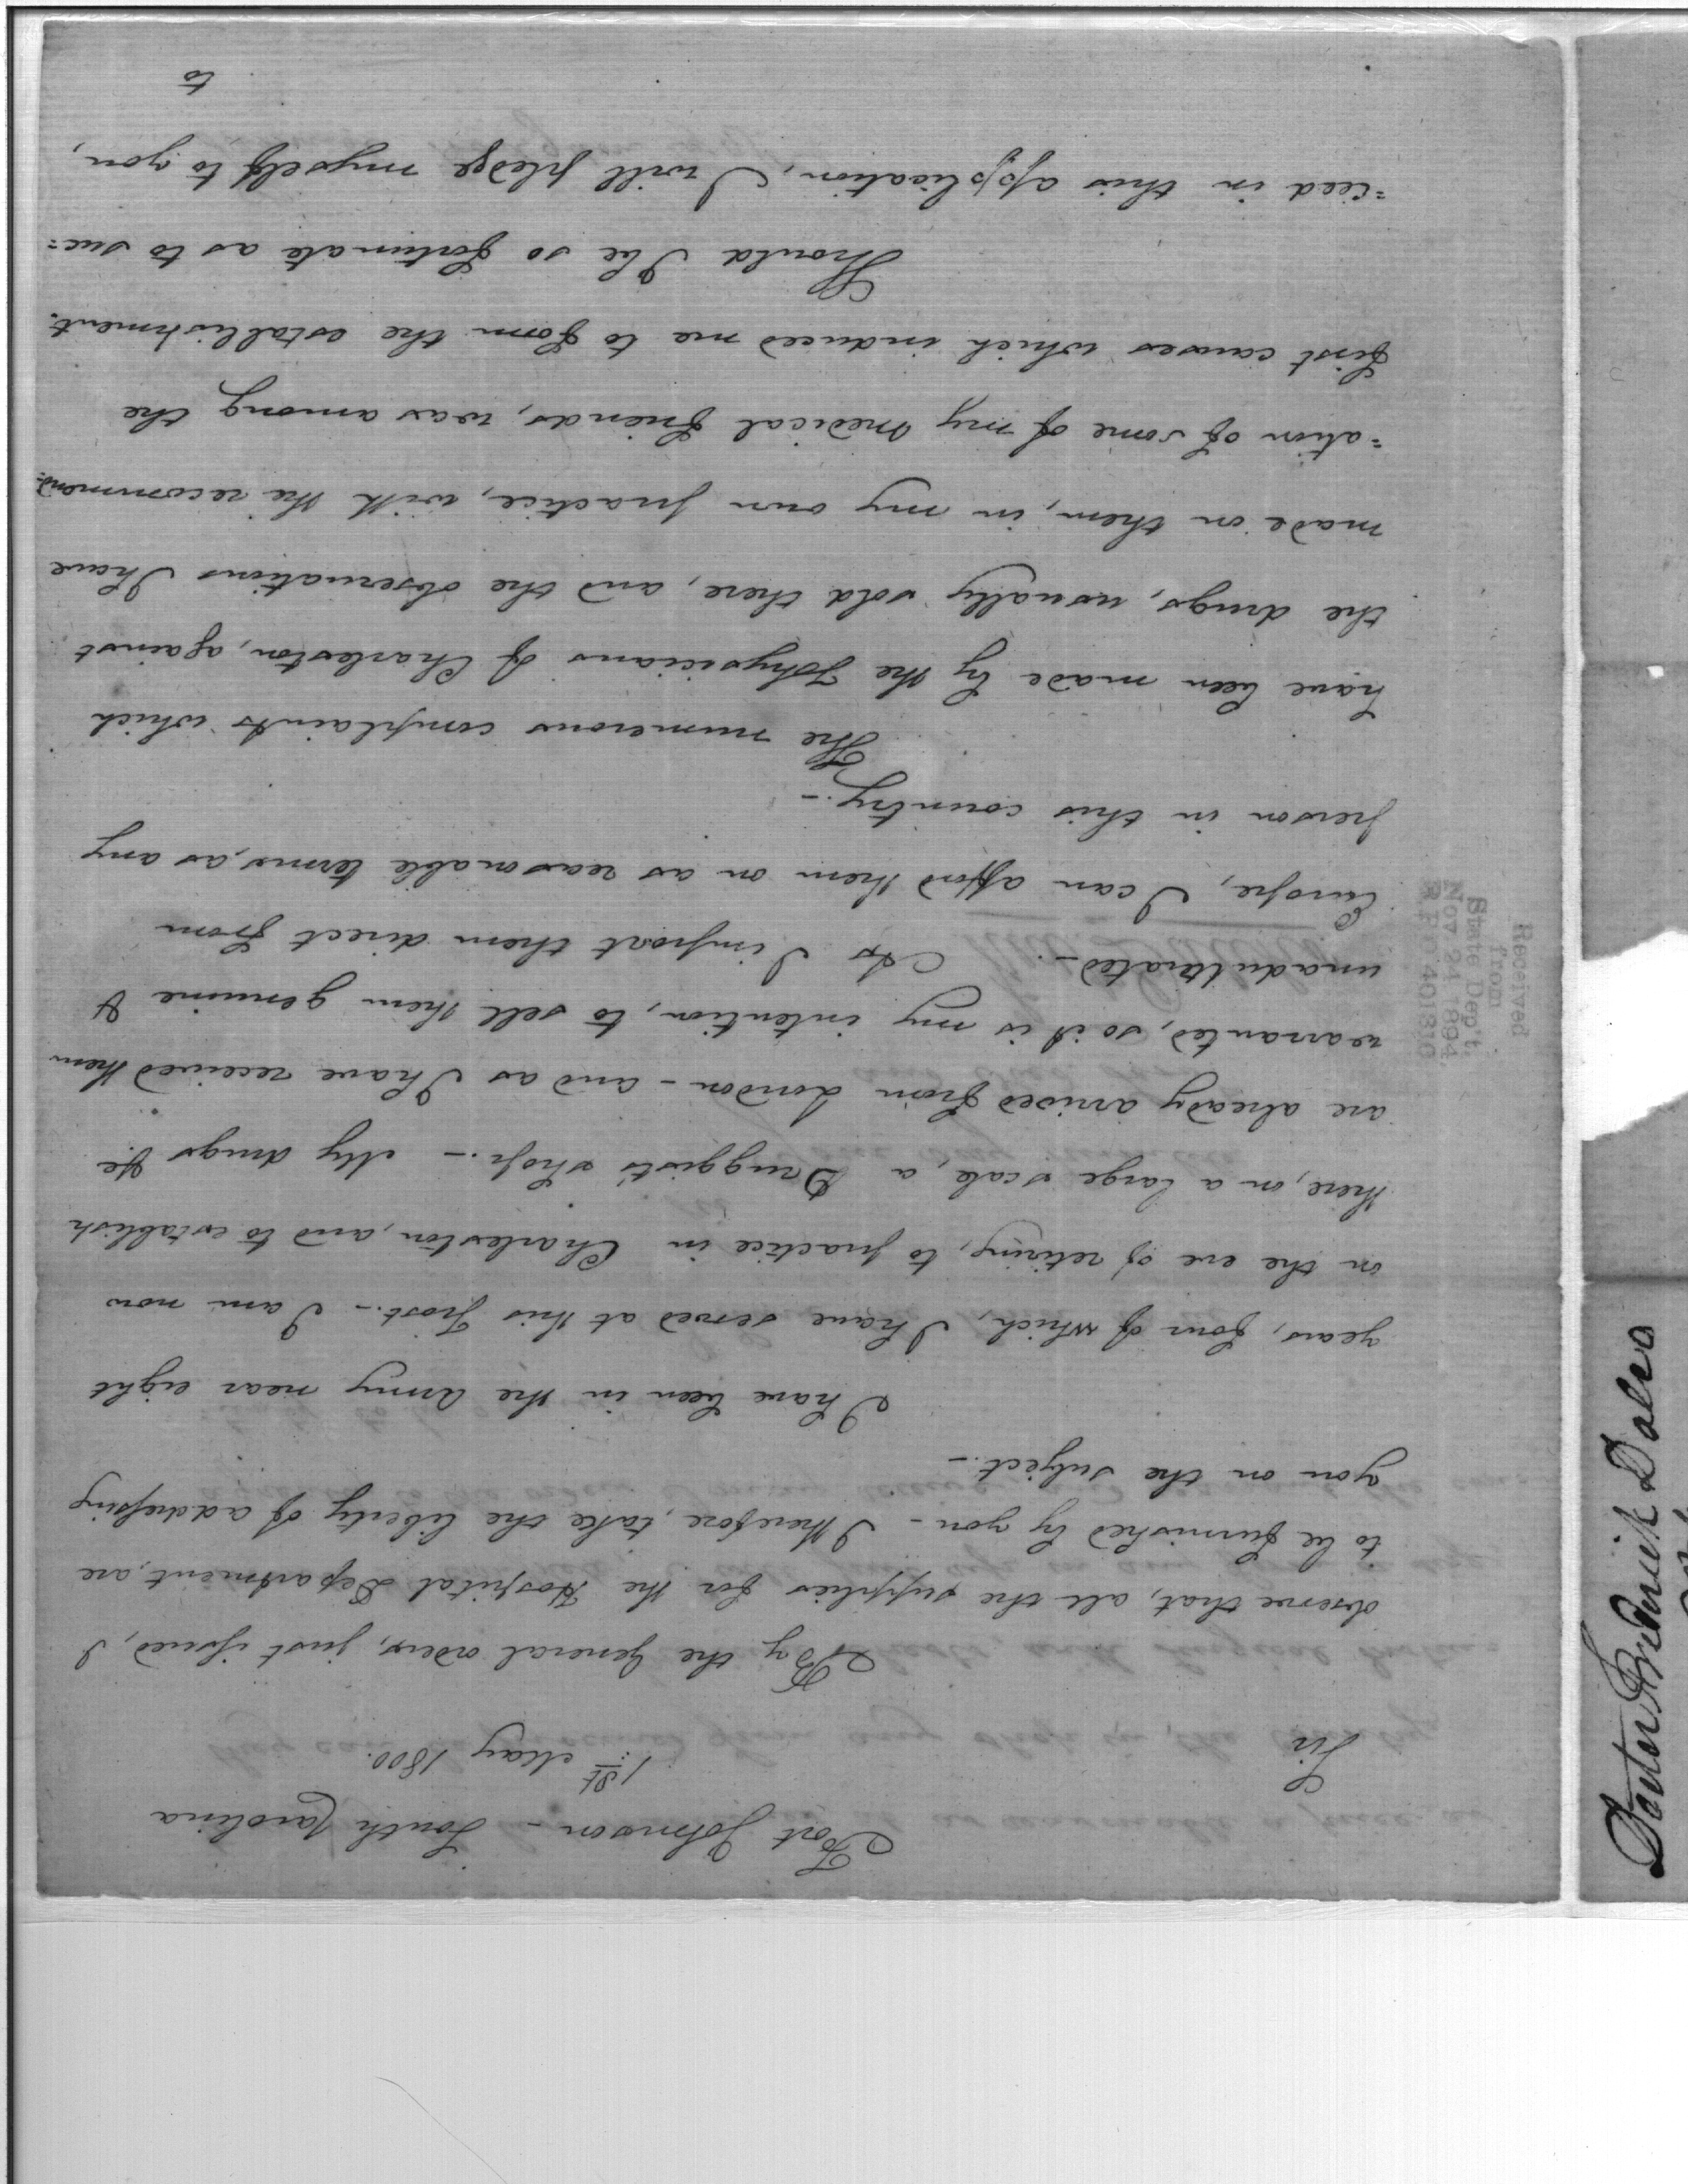 Fort Johnson - South Carolina
1st May 1800.
Sir
By the General orders, just issued, I
observe that, all the supplies for the Hospital Department, are
to be furnished by you - I therefore, take the liberty of addressing
you on the subject. -
I have been in the Army near eight
years, four of which, I have served at this Post. - I am now
on the eve of retiring, to practice in Charleston, and to establish
there, on a large scale, a Druggist's shop. - My drugs &c.
are already arrived from London - and as I have received them
warranted, so it is my intention, to sell them genuine &
unadulterated -. As I import them direct from
Europe, I can afford them on as reasonable terms, as any
person in this country. -
The numerous complaints which
have been made by the Physicians of Charleston, against
the drugs, usually sold there, and, the observations I have
made on them, in my own practice, with the recommend-
=ation of some of my Medical friends, was among the
first causes which induced me to form the establishment.
Should I be so fortunate as to suc=
=ceed in this application, I will pledge myself to you,
to
Received
from
State Dep't.
Nov 21 1894.
R P 401310
Doctor Frederick Dalco